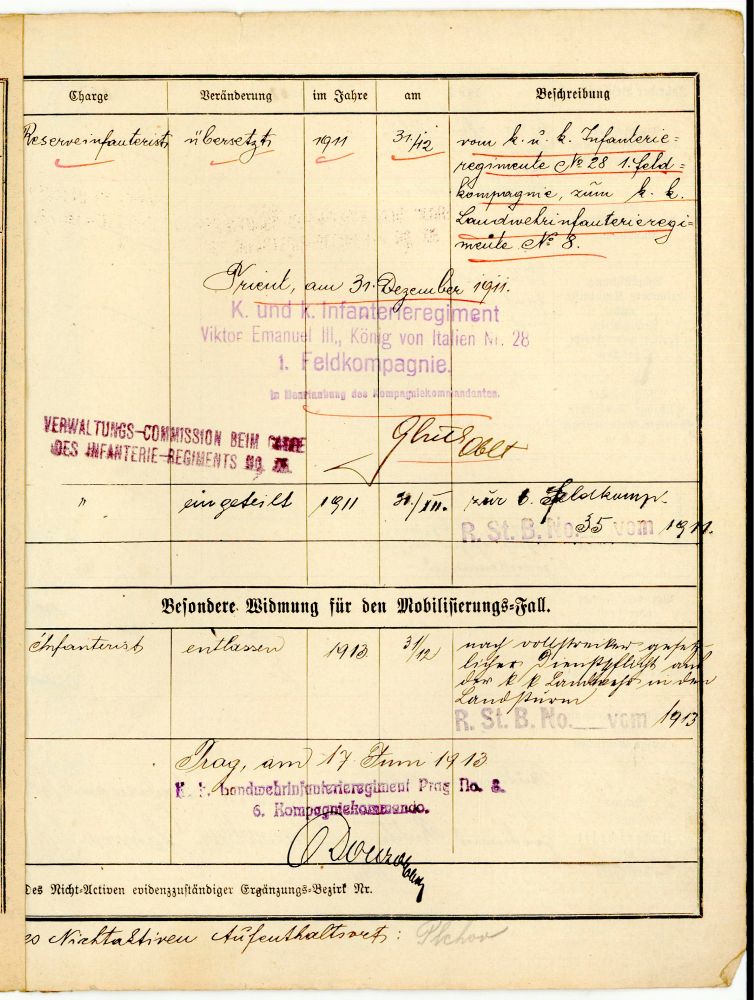 Charge Veränderung im Jahre am Beschreibung
Reserveinfanterist übersetzt 1911 31/12 vom k. u. k. Infanterie=
regimente No 28 1. Feld=
kompagnie, zum k. k.
Landwehrinfanterieregi=
mente No 8.
Trient, am 31. Dezember 1911.
K. und k. Infanterieregiment
Viktor Emanuel III., König von Italien Nr. 28
1. Feldkompagnie.
des Kompagniekommandanten.
Oblt
VERWALTUNGS-COMMISSION BEIM CADRE
DES INFANTERIE-REGIMENTS NO.
" eingeteilt 1911 31/XII. zur 6. Feldkomp.
R. St. B. No. 35 vom 1911.
Besondere Widmung für den Mobilisierungs=Fall.
Infanterist entlassen 1913 31/12 nach vollstreckter gesetz-
licher Dienstpflicht aus
der k k Landwehr in den
Landsturm
R. St. B. No. vom 1913
Prag, am 17 Juni 1913
K. k. Landwehrinfanterieregiment Prag No. 8.
6. Kompagniekommando.
Des Nicht=Activen evidenzzuständiger Ergänzungs=Bezirk Nr.
Nichtaktiven Aufenthaltsort: